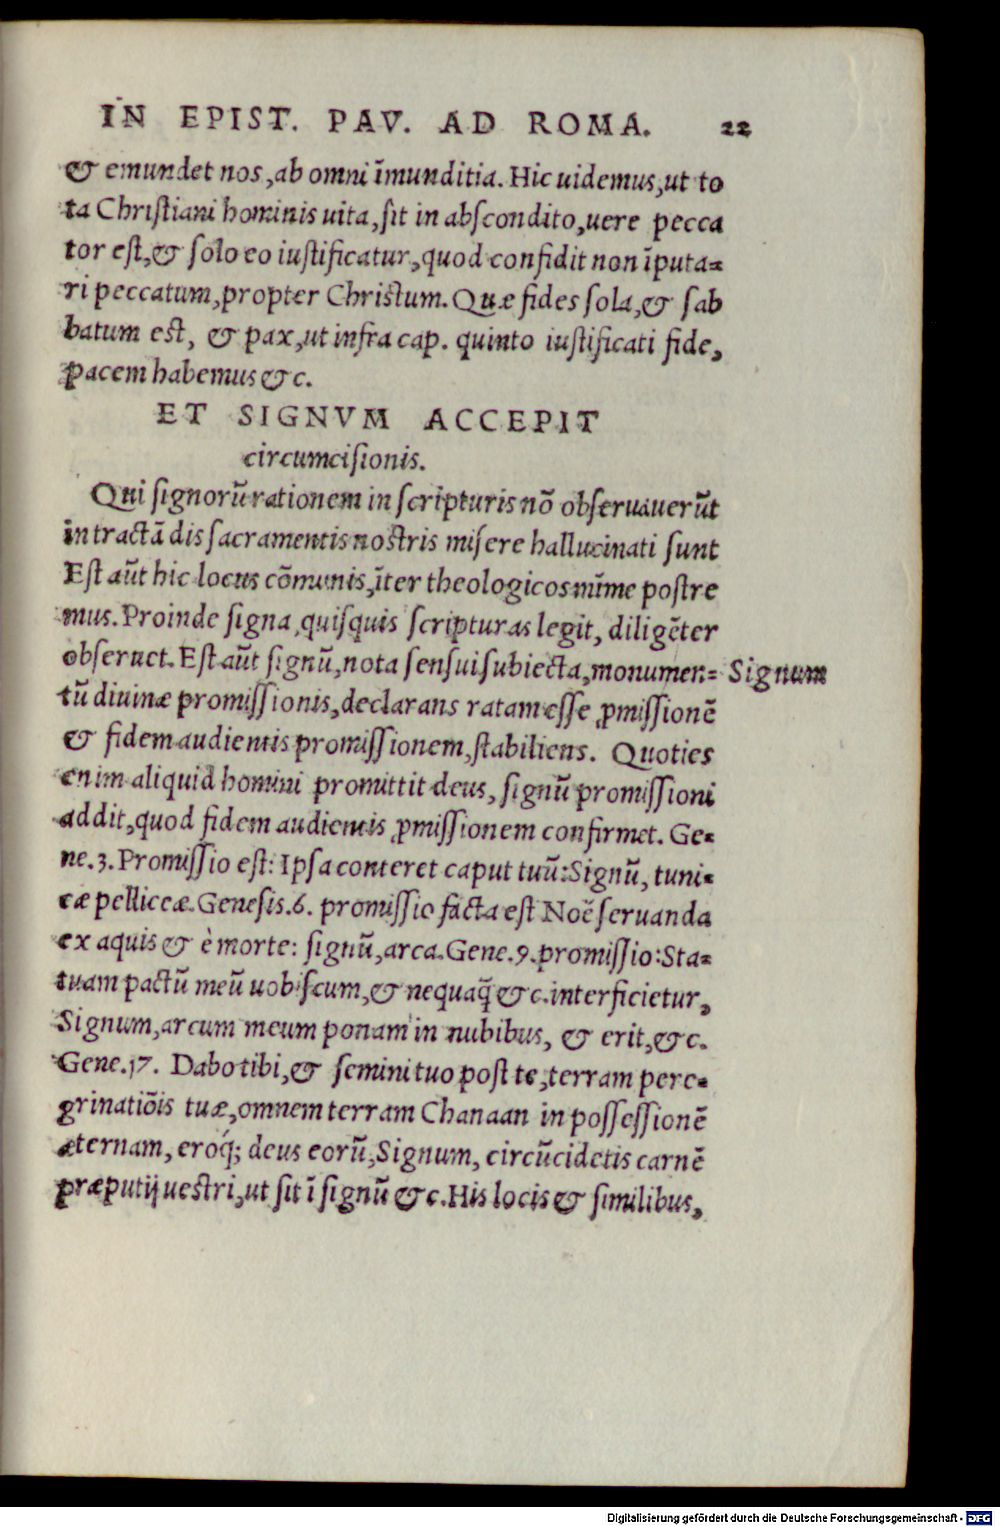 IN EPIST. PAV. AD ROMA. 22
& emundet nos, ab omni īmunditia. Hic uidemus, ut to
ta Chriſtiani hominis uita, ſit in abſcondito, uere pecca
tor eſt, & ſolo eo iuſtificatur, quod confidit non īputa-
ri peccatum, propter Chriſtum. Quæ fides ſola, & ſab
batum eſt, & pax, ut infra cap. quinto iuſtificati fide,
pacem habemus &c.
ET SIGNVM ACCEPIT
circumciſionis.
Qui ſignorū rationem in ſcripturis nō obſeruauerūt
in tractādis ſacramentis noſtris miſere hallucinati ſunt
Eſt aūt hic locus cōmunis, īter theologicos mīme poſtre
mus. Proinde ſigna, quiſquis ſcripturas legit, diligēter
obſeruet. Eſt aūt ſignū, nota ſenſui ſubiecta, monumen-
Signum
tū diuinæ promiſſionis, declarans ratam eſſe ꝓmiſſionē
& fidem audientis promiſſionem, ſtabiliens. Quoties
enim aliquid homini promittit deus, ſignū promiſſioni
addit, quod fidem audientis ꝓmiſſionem confirmet. Ge-
ne.3. Promiſſio eſt: Ipſa conteret caput tuū: Signū, tuni-
cæ pelliceæ. Geneſis.6. promiſſio facta eſt Noē ſeruanda
ex aquis & è morte: ſignū, arca. Gene.9. promiſſio: Sta-
tuam pactū meū uobiſcum, & nequaq̄ &c. interficietur,
Signum, arcum meum ponam in nubibus, & erit, &c.
Gene.17. Dabo tibi, & ſemini tuo poſt te, terram pere-
grinatiōis tuæ, omnem terram Chanaan in poſſeſſionē
æternam, eroq́; deus eorū, Signum, circūcidetis carnē
præputij ueſtri, ut ſit ī ſignū &c. His locis & ſimilibus,
Digitalisierung gefördert durch die Deutsche Forschungsgemeinschaft - DFG